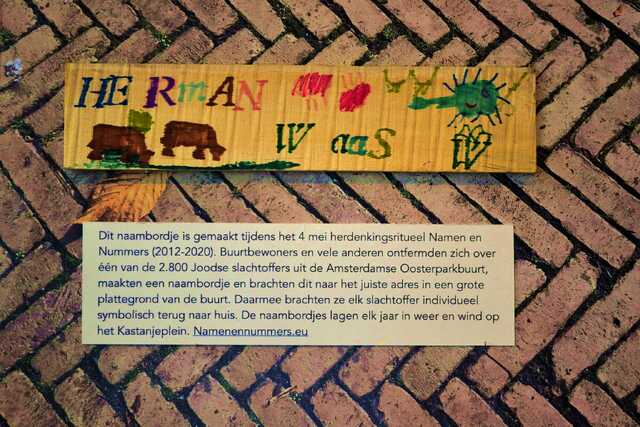 HERMAN
WaaS
Dit naambordje is gemaakt tijdens het 4 mei herdenkingsritueel Namen en
Nummers (2012-2020). Buurtbewoners en vele anderen ontfermden zich over
één van de 2.800 Joodse slachtoffers uit de Amsterdamse Oosterparkbuurt,
maakten een naambordje en brachten dit naar het juiste adres in een grote
plattegrond van de buurt. Daarmee brachten ze elk slachtoffer individueel
symbolisch terug naar huis. De naambordjes lagen elk jaar in weer en wind op
het Kastanjeplein. Namenennummers.eu